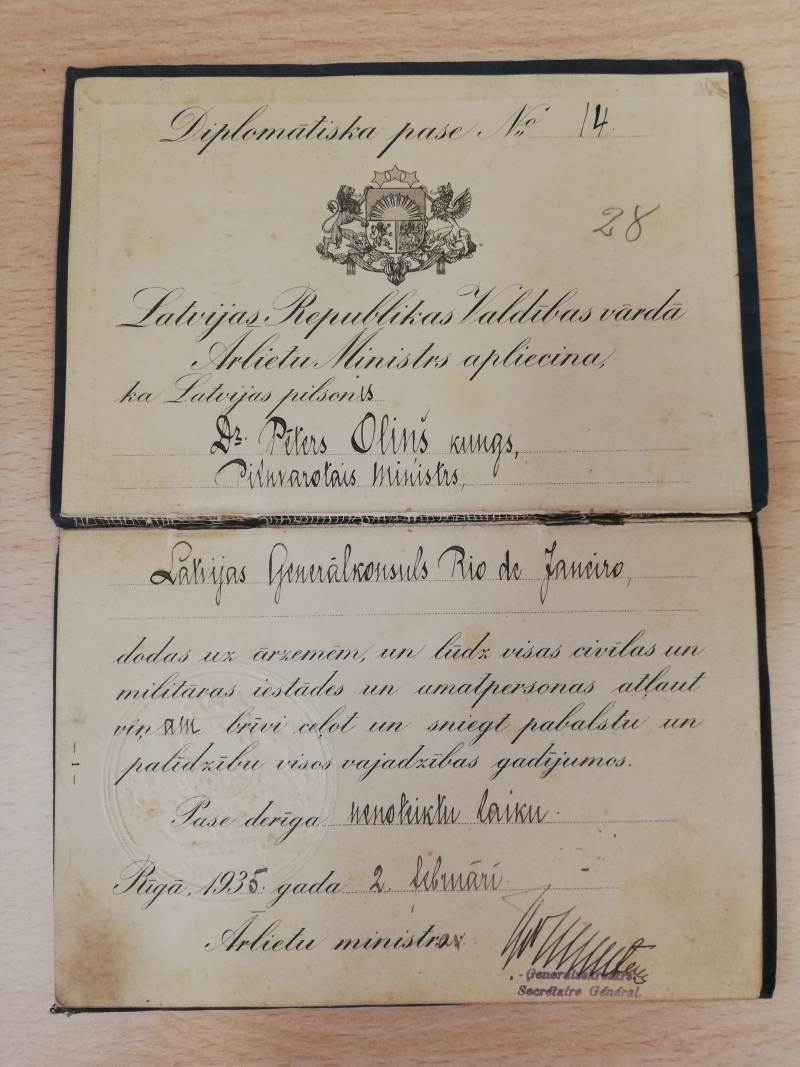 Diplomātiska pase No 14.
28
Latvijas Republikas Valdības vārdā
Ārlietu Ministrs apliecina,
ka Latvijas pilsonis
Dr. Pēters Oliņš kungs,
Pilnvarotais Ministrs,
Latvijas Ģenerālkonsuls Rio de Janeiro,
dodas uz ārzemēm, un lūdz visas civīlas un
militāras iestādes un amatpersonas atļaut
viņam brīvi ceļot un sniegt pabalstu un
palīdzību visos vajadzības gadījumos.
– 1 –
Pase derīga nenoteiktu laiku.
Rīgā, 1935. gada 2. februārī.
Ārlietu ministra v.
Ģenerālsekretārs.
Secrétaire Général.